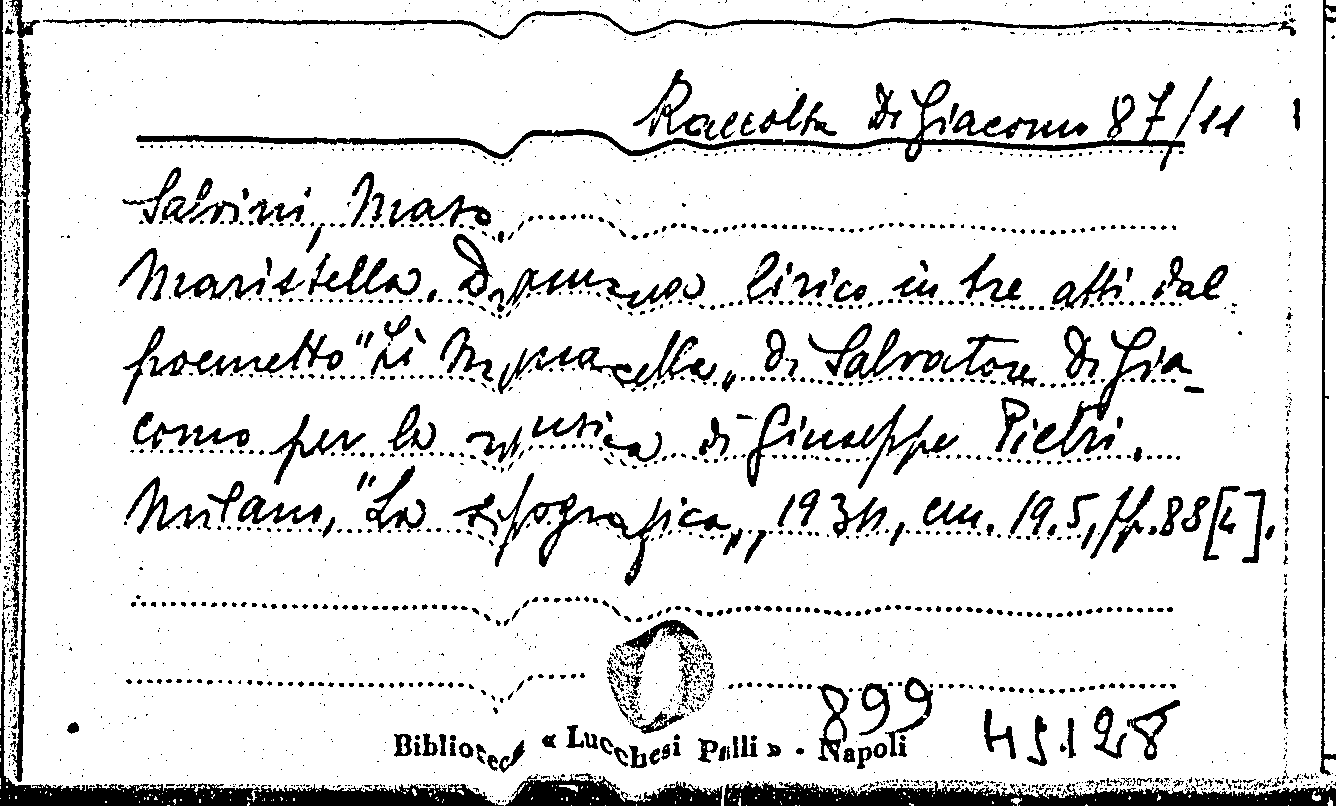 Raccolta Di Giacomo 87/11
Salvini, Maso.
Maristella. Dramma lirico in tre atti dal
poemetto "Lì Munacella„ di Salvatore Di Gia_
como per la musica di Giuseppe Pietri.
Milano, "La tipografica„, 1934, cm. 19.5, pp. 88 [4].
899
45128
Biblioteca « Lucchesi Palli » - Napoli